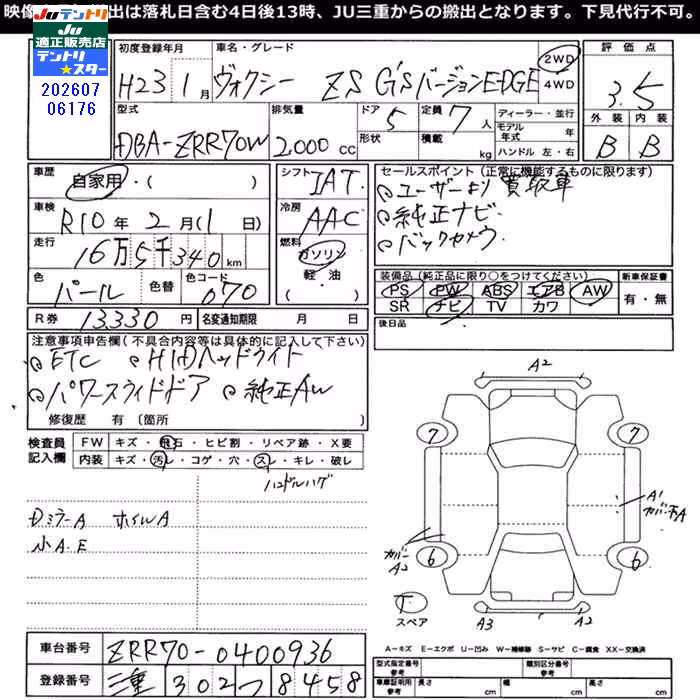 映像 出は落札日含む4日後13時、JU三重からの搬出となります。下見代行不可。
JUテントリ
JU適正販売店
テントリ★スター
202607
06176
初度登録年月
H23 1月
車名・グレード
ヴォクシー ZS G'SバージョンEDGE
2WD
4WD
評価点
3.5
外装 内装
B B
型式
DBA-ZRR70W
排気量
2,000 cc
ドア 5
形状
定員 7 人
積載 kg
ディーラー・並行
モデル年式 年
ハンドル 左・右
車歴
自家用・( )
車検
R10年 2月(1日)
走行
16万5千340 km
色
パール
色替
色コード
070
シフト IAT
冷房 AAC
燃料
ガソリン
軽・油
( )
セールスポイント(正常に機能するものに限ります)
ユーザーより買取車
純正ナビ
バックカメラ
装備品(純正品に限り○をつけてください)
PS PW ABS エアB AW
SR ナビ TV カワ
新車保証書
有・無
後日品
R券 13330円
名変通知期限 月 日
注意事項申告欄(不具合内容等は具体的に記入して下さい)
ETC HIDヘッドライト
パワースライドドア 純正AW
修復歴 有(箇所 )
検査員
記入欄
FW キズ・飛石・ヒビ割・リペア跡・X要
内装 キズ・汚レ・コゲ・穴・スレ・キレ・破レ
ハンドルハゲ
DミラーA ホイルA
小A.E
A2
7 7
A1
カバー下A
カバーA2
6 6
T
スペア
A3 A2
A-キズ E-エクボ U-凹み W-補修跡 S-サビ C-腐食 XX-交換済
車台番号 ZRR70-0400936
登録番号 三重 302 つ 8458
型式指定番号 参考
類別区分番号 参考
車庫証明用参考
長さ cm
幅 cm
高さ cm